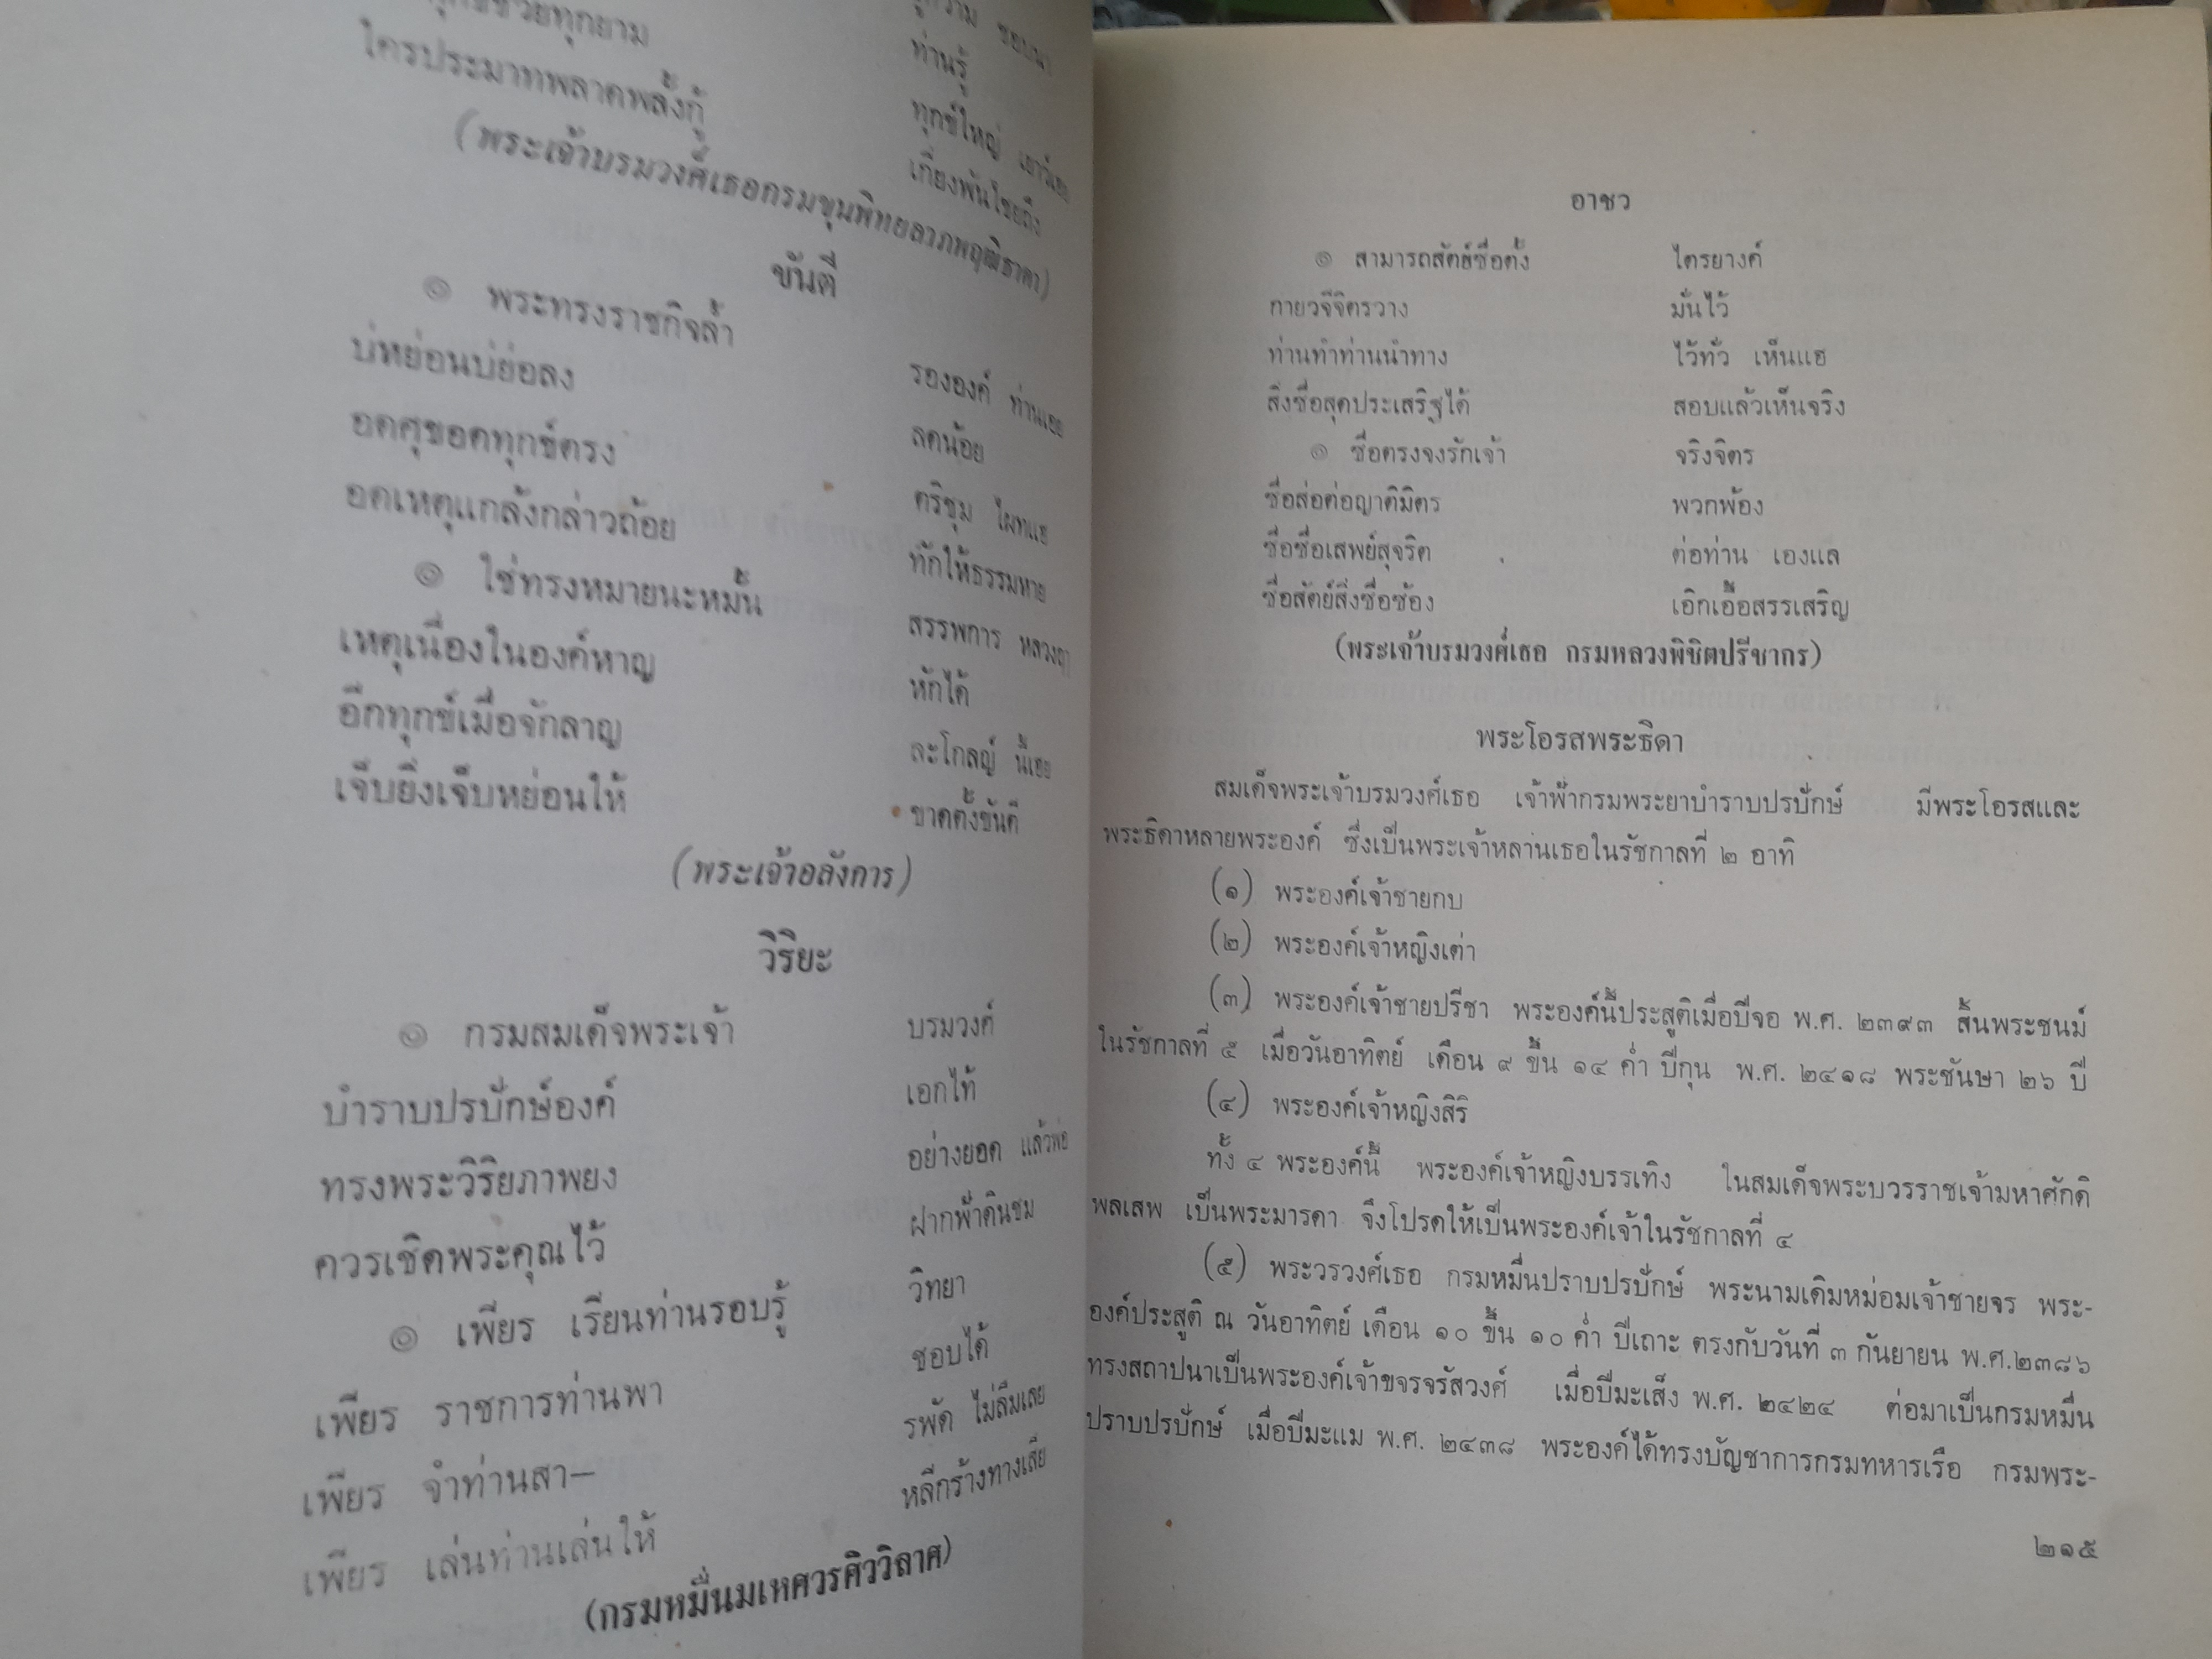 ทุกยาม
ใครประมาทพลาดพลั้งกู้ ท่านรู้
ทุกข์ใหญ่
(พระเจ้าบรมวงศ์เธอกรมขุนพิทยลาภพฤฒิธาดา)
ขันตี
๏ พระทรงราชกิจล้ำ รององค์ ท่านเฮย
บ่หย่อนบ่ย่อลง ลดน้อย
อดศุขอดทุกข์ตรง ตริชุม ไผทแฮ
อดเหตุแกล้งกล่าวถ้อย ทักให้ธรรมหาย
๏ ใช่ทรงหมายนะหมั้น สรรพการ หลวงฤๅ
เหตุเนื่องในองค์หาญ หักได้
อีกทุกข์เมื่อจักลาญ ละโกลญ์ นี้เฮย
เจ็บยิ่งเจ็บหย่อนให้ ขาดตั้งขันตี
(พระเจ้าอลังการ)
วิริยะ
๏ กรมสมเด็จพระเจ้า บรมวงศ์
บำราบปรปักษ์องค์ เอกไท้
ทรงพระวิริยภาพยง อย่างยอด แล้วพ่อ
ควรเชิดพระคุณไว้ ฝากฟ้าดินชม
๏ เพียร เรียนท่านรอบรู้ วิทยา
เพียร ราชการท่านพา ชอบได้
เพียร จำท่านสา– รพัด ไม่ลืมเลย
เพียร เล่นท่านเล่นให้ หลีกร้างทางเสีย
(กรมหมื่นมเหศวรศิววิลาศ)
อาชว
๏ สามารถสัตย์ซื่อตั้ง ไตรยางค์
กายวจีจิตรวาง มั่นไว้
ท่านทำท่านนำทาง ไว้ทั่ว เห็นแฮ
สิ่งซื่อสุดประเสริฐได้ สอบแล้วเห็นจริง
๏ ซื่อตรงจงรักเจ้า จริงจิตร
ซื่อส่อต่อญาติมิตร พวกพ้อง
ซื่อซื่อเสพย์สุจริต ต่อท่าน เองแล
ซื่อสัตย์สิ่งซื่อซ้อง เอิกเอื้อสรรเสริญ
(พระเจ้าบรมวงศ์เธอ กรมหลวงพิชิตปรีชากร)
พระโอรสพระธิดา
สมเด็จพระเจ้าบรมวงศ์เธอ เจ้าฟ้ากรมพระยาบำราบปรปักษ์ มีพระโอรสและ
พระธิดาหลายพระองค์ ซึ่งเป็นพระเจ้าหลานเธอในรัชกาลที่ ๒ อาทิ
(๑) พระองค์เจ้าชายกบ
(๒) พระองค์เจ้าหญิงเต่า
(๓) พระองค์เจ้าชายปรีชา พระองค์นี้ประสูติเมื่อปีจอ พ.ศ. ๒๓๙๓ สิ้นพระชนม์
ในรัชกาลที่ ๕ เมื่อวันอาทิตย์ เดือน ๙ ขึ้น ๑๔ ค่ำ ปีกุน พ.ศ. ๒๔๑๘ พระชันษา ๒๖ ปี
(๔) พระองค์เจ้าหญิงสิริ
ทั้ง ๔ พระองค์นี้ พระองค์เจ้าหญิงบรรเทิง ในสมเด็จพระบวรราชเจ้ามหาศักดิ
พลเสพ เป็นพระมารดา จึงโปรดให้เป็นพระองค์เจ้าในรัชกาลที่ ๔
(๕) พระวรวงศ์เธอ กรมหมื่นปราบปรปักษ์ พระนามเดิมหม่อมเจ้าชายจร พระ-
องค์ประสูติ ณ วันอาทิตย์ เดือน ๑๐ ขึ้น ๑๐ ค่ำ ปีเถาะ ตรงกับวันที่ ๓ กันยายน พ.ศ.๒๓๘๖
ทรงสถาปนาเป็นพระองค์เจ้าขจรจรัสวงศ์ เมื่อปีมะเส็ง พ.ศ. ๒๔๒๔ ต่อมาเป็นกรมหมื่น
ปราบปรปักษ์ เมื่อปีมะแม พ.ศ. ๒๔๓๘ พระองค์ได้ทรงบัญชาการกรมทหารเรือ กรมพระ-
๒๑๕